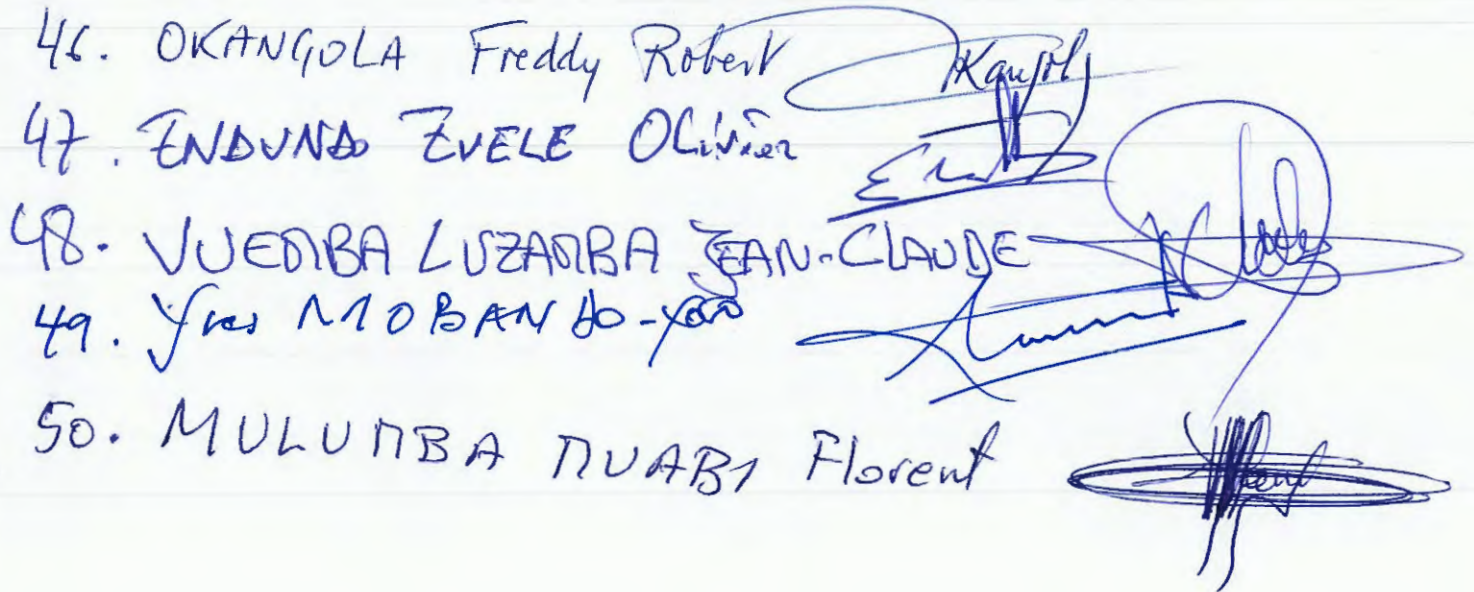 46. OKANGOLA Freddy Robert
47. ENDUNDO ZUELE Olivier
48. VUEMBA LUZAMBA JEAN-CLAUDE
49. Yves MOBANDO-yogo
50. MULUMBA MUABI Florent